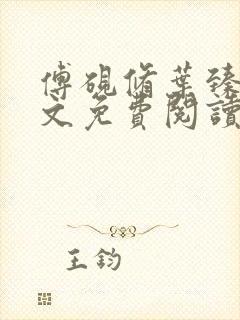 傅硯脩葉臻
文免費閱讀
王鈞